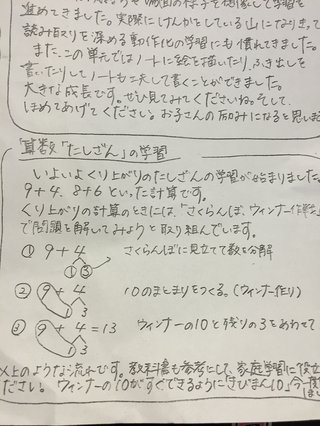 進めてきました。実際にけんかをしている山になりきって
読み取りを深める動作化の学習にも慣れてきました。
また、この単元ではノートに絵を描いたり、ふき出しを
書いたりしてノートも工夫して書くことができました。
大きな成長です。ぜひ見てみてくださいね。そして、
ほめてあげてください。お子さんの励みになると思いま
算数「たしざん」の学習
いよいよくり上がりのたしざんの学習が始まりました。
9+4、8+6といった計算です。
くり上がりの計算のときには、「さくらんぼ、ウィンナー作戦」
で問題を解してみようと取り組んでいます。
① 9+4 さくらんぼに見立てて数を分解
① ③
② 9+4 10のまとまりをつくる。(ウィンナー作り)
1 3
③ 9+4=13 ウィンナーの10と残りの3をあわせて
1 3
以上のような流れです。教科書も参考にして、家庭学習に役立
ださい。ウィンナーの10がすぐできるように「きびまん10」